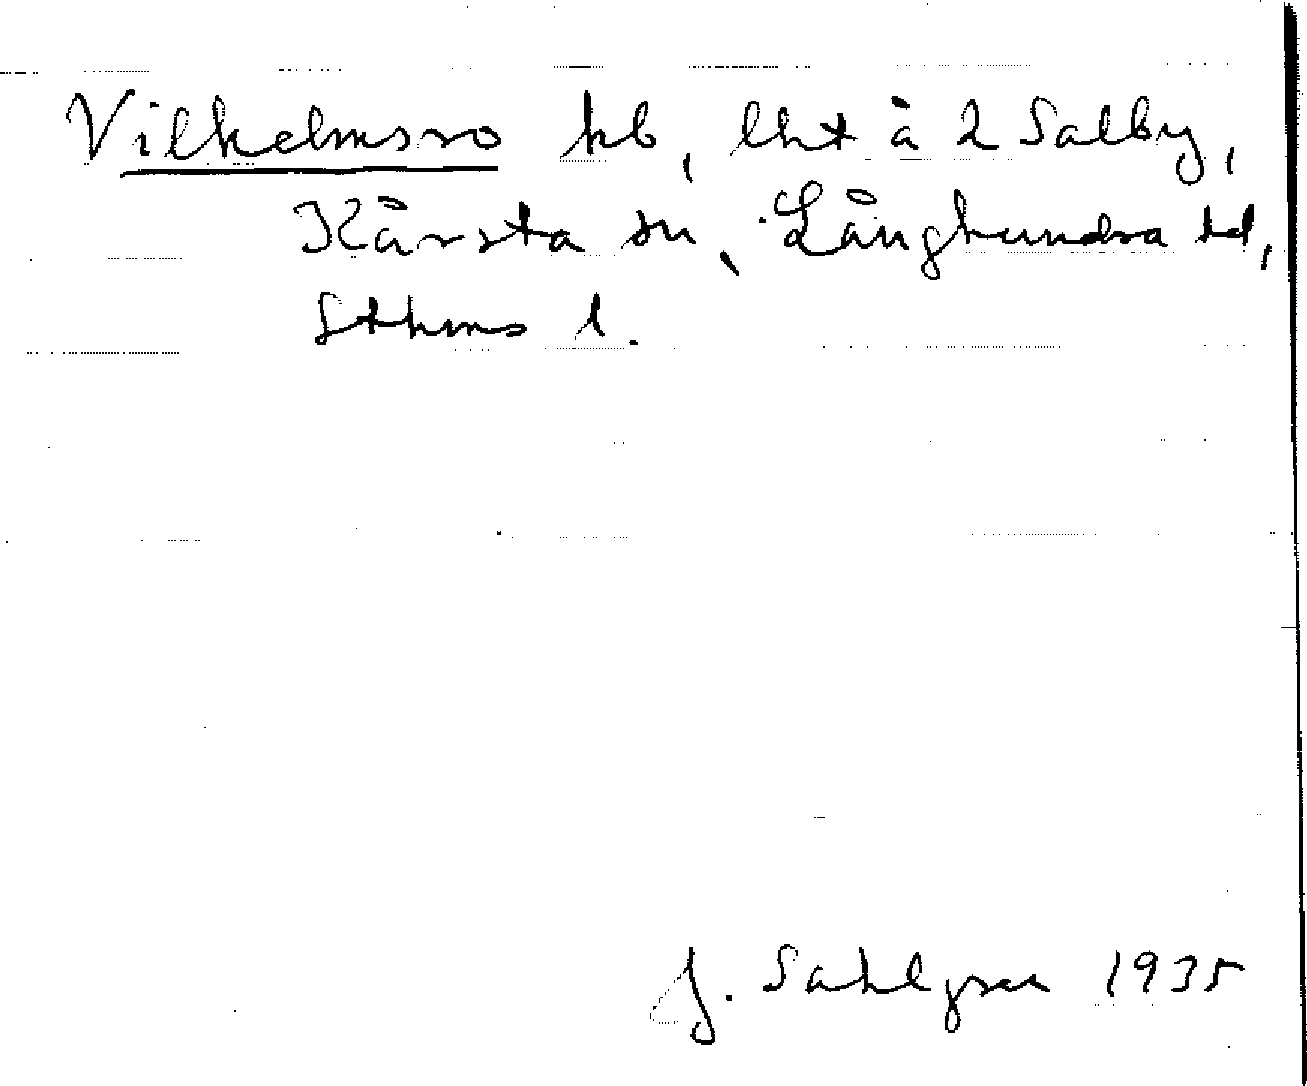 Vilhelmsro hb, lht å 2 Salby,
Kårsta sn, Långhundra hd,
Sthms l.
J. Sahlgren 1935